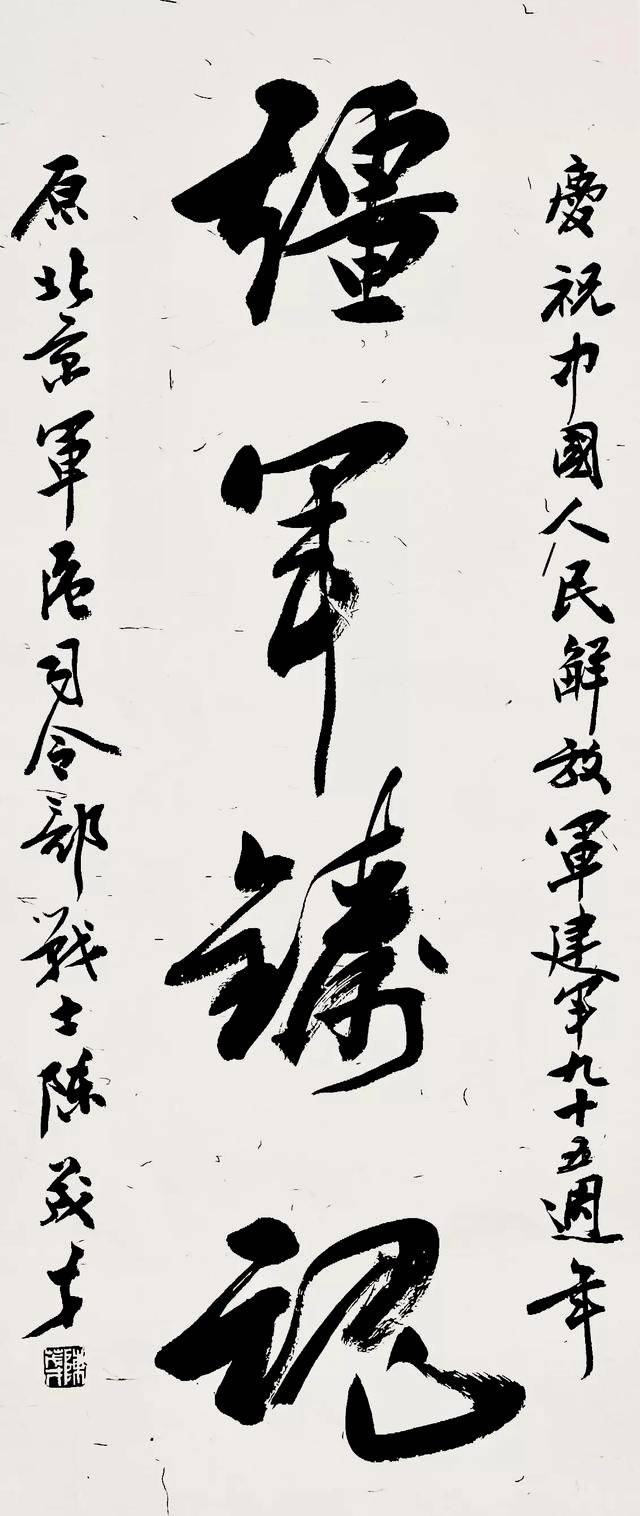 慶祝中國人民解放軍建軍九十五週年
彊軍鑄魂
原北京軍區司令部戰士陳茂才